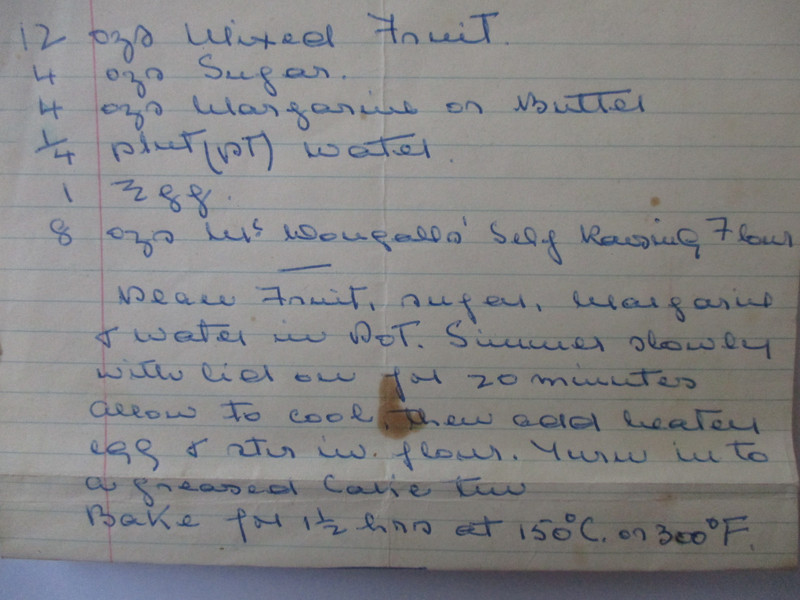 12 ozs Mixed Fruit.
4 ozs Sugar.
4 ozs Margarine or Butter
1/4 pint (pt) water.
1 Egg.
8 ozs Mc Dougalls' Self Raising Flour
Place Fruit, sugar, Margarine
& water in Pot. Simmer slowly
with lid on for 20 minutes
allow to cool, then add beaten
egg & stir in. flour. Turn in to
a greased Cake tin
Bake for 1 1/2 hrs at 150°C. or 300°F.